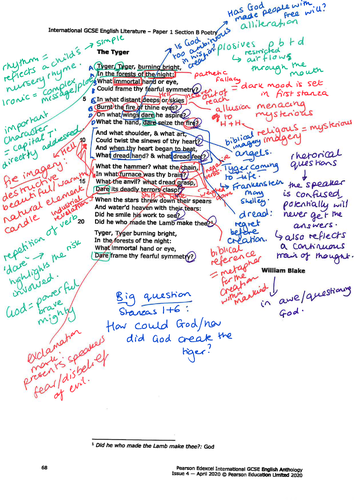 International GCSE English Literature – Paper 1 Section B Poetry
The Tyger
Tyger, Tyger, burning bright,
In the forests of the night:
What immortal hand or eye,
Could frame thy fearful symmetry?
In what distant deeps or skies
Burnt the fire of thine eyes?
On what wings dare he aspire?
What the hand, dare seize the fire?
And what shoulder, & what art,
Could twist the sinews of thy heart?
And when thy heart began to beat,
What dread hand? & what dread feet?
What the hammer? what the chain,
In what furnace was thy brain?
What the anvil? what dread grasp,
Dare its deadly terrors clasp?
When the stars threw down their spears
And water'd heaven with their tears:
Did he smile his work to see?
Did he who made the Lamb make thee?¹
20
Tyger Tyger, burning bright,
In the forests of the night:
What immortal hand or eye,
Dare frame thy fearful symmetry?
William Blake
simple
rhythm =
reflects a child's
nursery rhyme.
Ironic = complex
message/
important
character
= capital T.
directly addressed
fire imagery:
destructive
beautiful/warm
natural element
candle
industrial
revolution
repetition of verb
'dare' = the risk
highlights
involved.
God = powerful
brave
mighty
exclamation
mark:
presents speakers
fear/disbelief
of evil.
Is God
too ambitious
in
Has God
made people with
free will?
alliteration
plosives p b t d
restricted
airflows
through the
mouth
pathetic
fallacy
= dark mood is set
in first stanza
out of
reach
allusion
to
menacing
mysterious
biblical
imagery
angels.
religious = mysterious
imagery
Tyger coming
to life.
Frankenstein
Mary
Shelley
dread:
regret
before
creation.
biblical
reference
= metaphor
for the
creation
mankind.
rhetorical
questions
the speaker
is confused,
potentially will
never get the
answers.
also reflects
a continuous
train of thought.
in awe/questioning
God.
Big question
Stanzas 1+6:
How could God/how
did God create the
tiger?
¹ Did he who made the Lamb make thee?: God
68
Pearson Edexcel International GCSE English Anthology
Issue 4 – April 2020 © Pearson Education Limited 2020